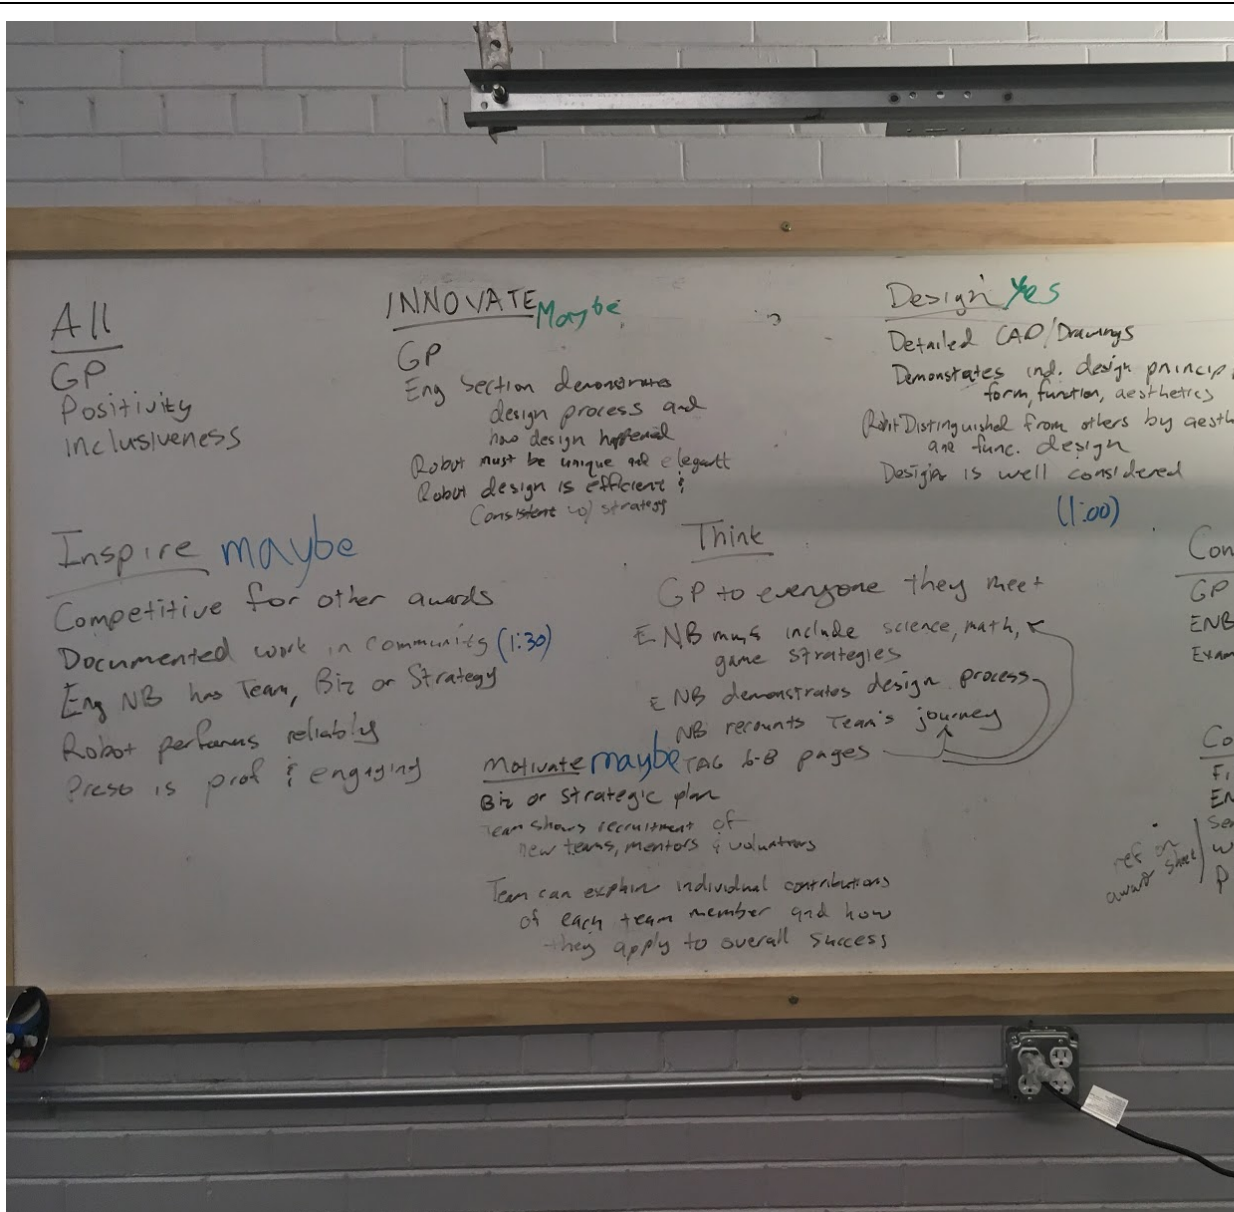 All
GP
Positivity
inclusiveness
INNOVATE Maybe
GP
Eng Section demonstrates
design process and
how design happened
Robot must be unique and elegant
Robot design is efficient &
Consistent w/ strategy
Design Yes
Detailed CAD/Drawings
Demonstrates ind. design princip
form, function, aesthetics
Robot Distinguished from others by aesth
and func. design
Design is well considered
(1:00)
Inspire maybe
Competitive for other awards
Documented work in community (1:30)
Eng NB has Team, Biz or Strategy
Robot performs reliably
Preso is prof & engaging
Think
GP to everyone they meet
ENB must include science, math,
game strategies
ENB demonstrates design process
NB recounts Team's journey
TAG 6-8 pages
Motivate maybe
Biz or strategic plan
Team shows recruitment of
new teams, mentors &
Team can explain individual contributions
of each team member and how
they apply to overall success
Con
GP
ENB
Exam
Co
Fi
EN
Se
w
P
ref on
award sheet